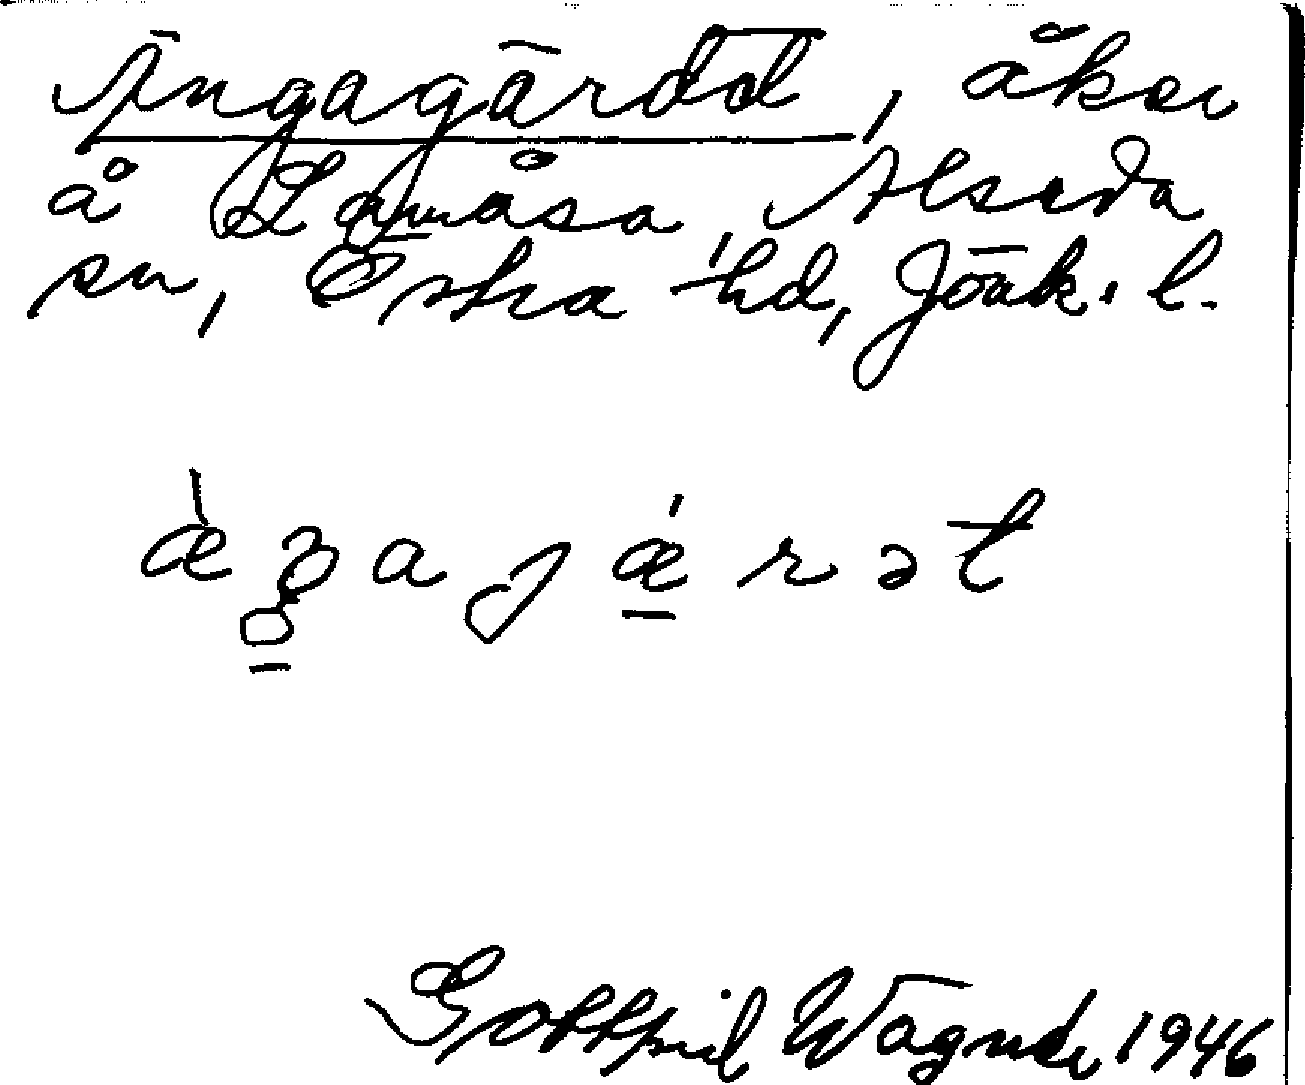 Ängagärdd, åker
å Lamåsa, Alseda
sn, Östra hd, Jönk. l.
Gottfrid Wägnder 1946